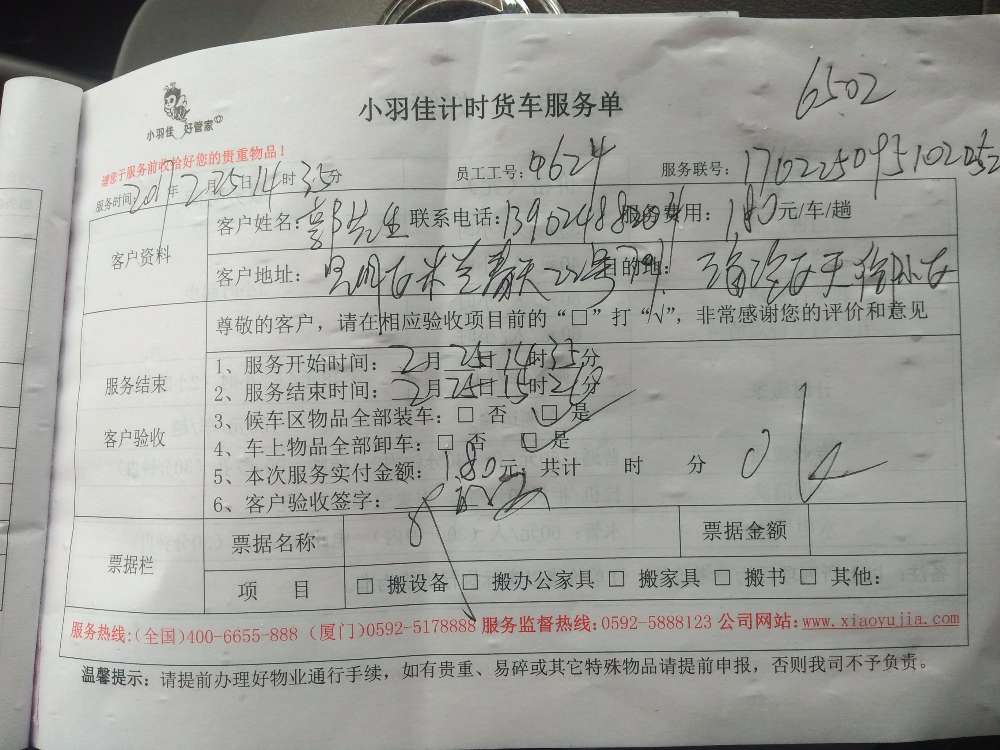 小羽佳计时货车服务单
6502
小羽佳 好管家
请您于服务前收拾好您的贵重物品！
服务时间: 2017年2月25日14时35分 员工工号: 0624 服务联号: 170225095102052
客户资料
客户姓名: 郭先生 联系电话: 服务费用: 180元/车/趟
客户地址: 目的地:
尊敬的客户，请在相应验收项目前的“□”打“√”，非常感谢您的评价和意见
服务结束
客户验收
1、服务开始时间: 2月25日14时35分
2、服务结束时间: 2月25日15时25分
3、候车区物品全部装车: □ 否 □ 是
4、车上物品全部卸车: □ 否 □ 是
5、本次服务实付金额: 180元; 共计 时 分
6、客户验收签字:
票据栏
票据名称 票据金额
项 目 □ 搬设备 □ 搬办公家具 □ 搬家具 □ 搬书 □ 其他:
服务热线:(全国)400-6655-888 (厦门)0592-5178888 服务监督热线:0592-5888123 公司网站:www.xiaoyujia.com
温馨提示: 请提前办理好物业通行手续，如有贵重、易碎或其它特殊物品请提前申报，否则我司不予负责。